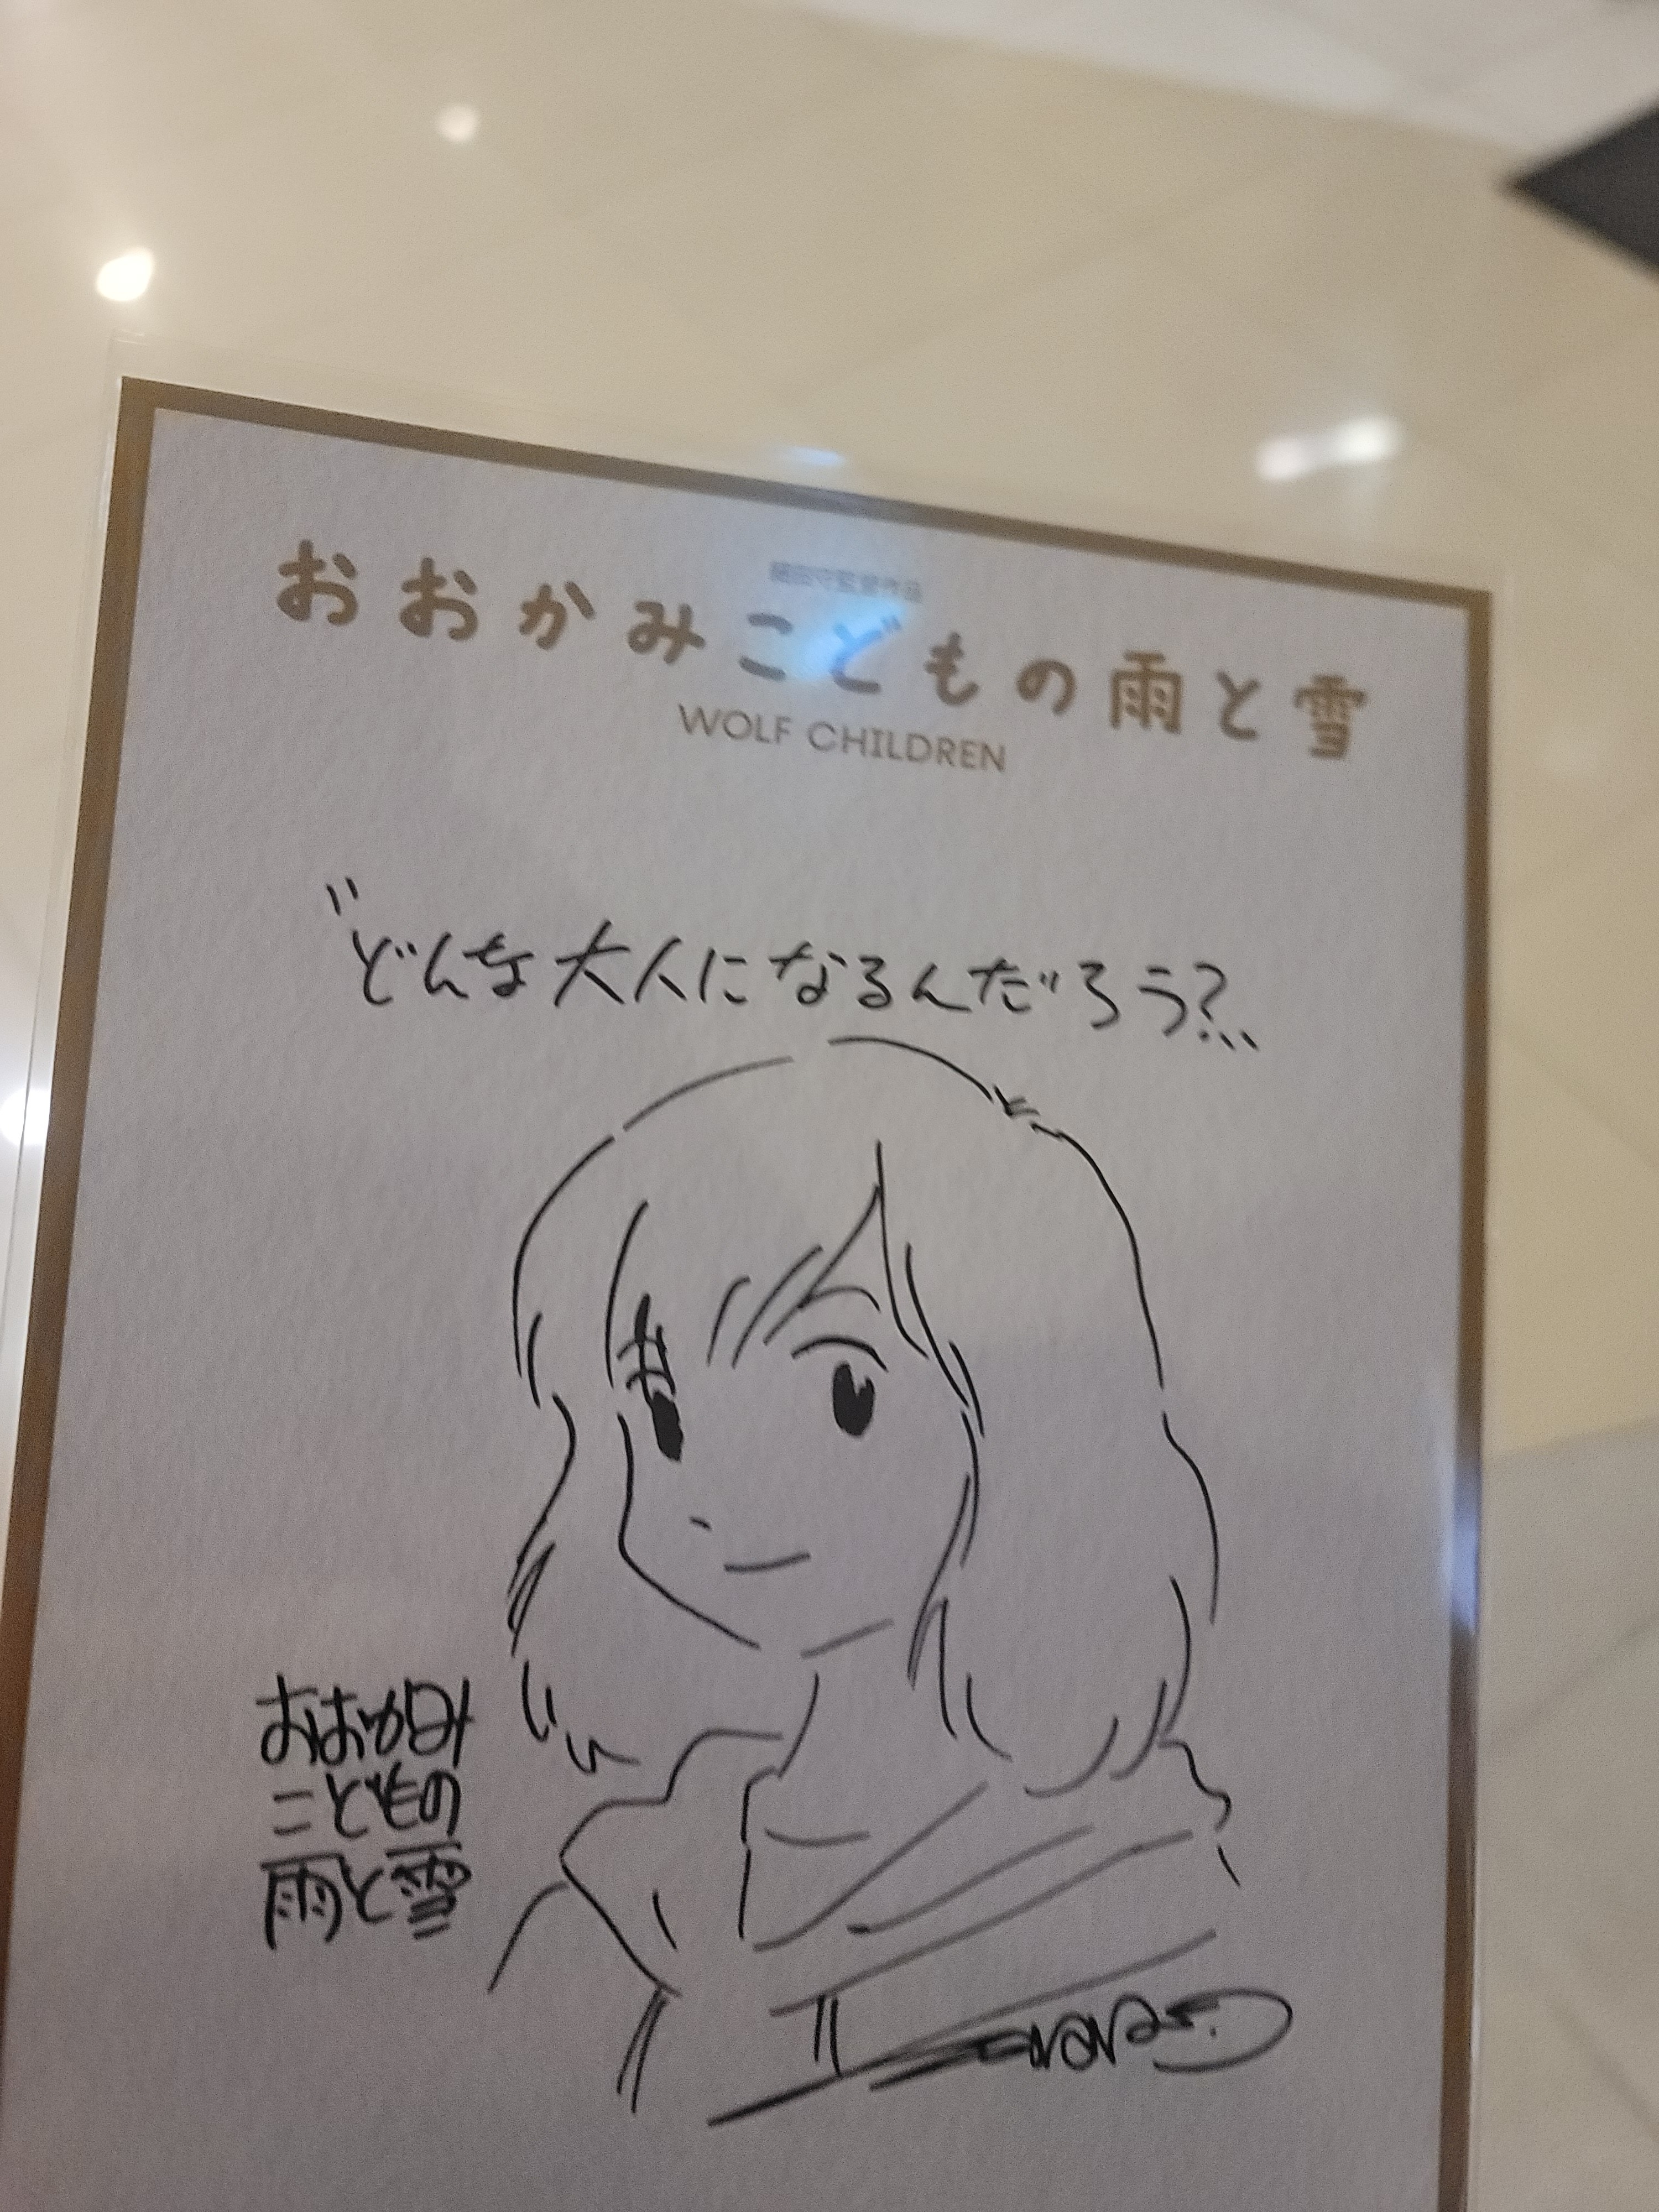 細田守監督作品
おおかみこどもの雨と雪
WOLF CHILDREN
"どんな大人になるんだろう?...
おおかみ
こどもの
雨と雪